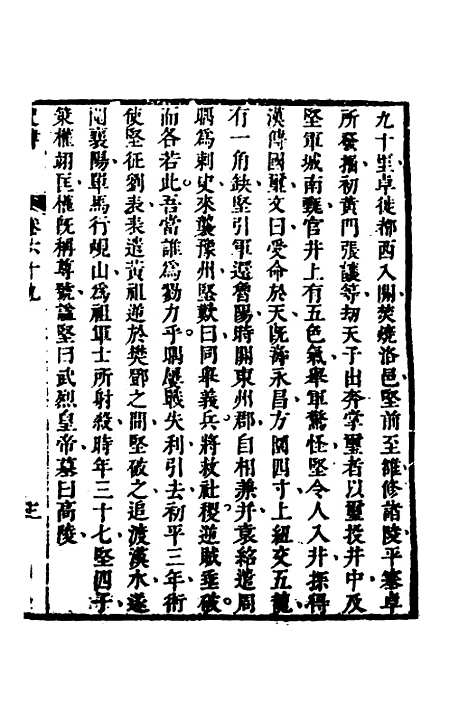 九十里卓徙都西入關焚燒洛邑堅前至雒修諸陵平塞卓
所發掘初黃門張讓等刼天子出奔掌璽者以璽投井中及
堅軍城南甄官井上有五色氣舉軍驚怪堅令人入井探得
漢傳國璽文曰受命於天既壽永昌方圜四寸上紐交五龍
有一角缺堅引軍還魯陽時關東州郡自相兼并袁紹遣周
㬂爲刺史來襲豫州堅歎曰同舉義兵將救社稷逆賊垂破
而各若此吾當誰爲勠力乎㬂屢戰失利引去初平三年術
使堅征劉表表遣黃祖逆於樊鄧之間堅破之追渡漢水遂
圍襄陽單馬行峴山爲祖軍士所射殺時年三十七堅四子
策權翊匡權既稱尊號諡堅曰武烈皇帝墓曰高陵
卷六十九